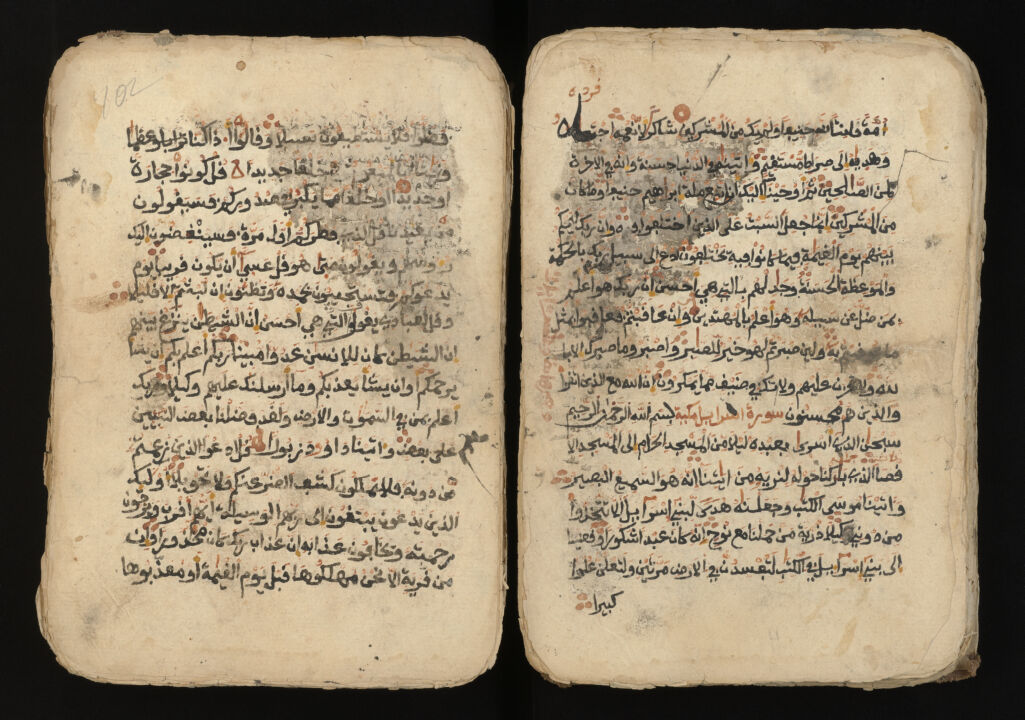 أمة قانتا لله حنيفا ولم يك من المشركين شاكرا لانعمه اجتبيه
وهديه الى صراط مستقيم واتينه في الدنيا حسنة وانه في الاخرة
لمن الصلحين ثم اوحينا اليك ان اتبع ملة ابرهيم حنيفا وما كان
من المشركين انما جعل السبت على الذين اختلفوا فيه وان ربك ليحكم
بينهم يوم القيمة فيما كانوا فيه يختلفون ادع الى سبيل ربك بالحكمة
والموعظة الحسنة وجدلهم بالتي هي احسن ان ربك هو اعلم
بمن ضل عن سبيله وهو اعلم بالمهتدين وان عاقبتم فعاقبوا بمثل
ما عوقبتم به ولين صبرتم لهو خير للصبرين واصبر وما صبرك الا با
لله ولا تحزن عليهم ولا تك في ضيق مما يمكرون ان الله مع الذين اتقوا
والذين هم محسنون سورة مكية بسم الله الرحمن الرحيم
سبحن الذي اسرى بعبده ليلا من المسجد الحرام الى المسجد الا
قصا الذي بركنا حوله لنريه من ايتنا انه هو السميع البصير
واتينا موسى الكتب وجعلنه هدى لبني اسرايل الا تتخذوا
من دوني وكيلا ذرية من حملنا مع نوح انه كان عبدا شكورا وقضينا
الى بني اسرايل في الكتب لتفسدن في الارض مرتين ولتعلن علوا
كبيرا
102
فضلوا فلا يستطيعون سبيلا وقالوا اذا كنا ترابا وعظما
خلقا جديدا قل كونوا حجارة
او حديدا او خلقا مما يكبر في صدوركم فسيقولون
من يعيدنا قل الذي فطركم اول مرة فسينغضون اليك
رءوسهم ويقولون متى هو قل عسى ان يكون قريبا يوم
يدعوكم فتستجيبون بحمده وتظنون ان لبثتم الا قليلا
وقل لعبادي يقولوا التي هي احسن ان الشيطن ينزغ بينهم
ان الشيطن كان للانسن عدوا مبينا ربكم اعلم بكم ان يشا
يرحمكم او ان يشا يعذبكم وما ارسلنك عليهم وكيلا وربك
اعلم بمن في السموت والارض ولقد فضلنا بعض النبيين
على بعض واتينا داوود زبورا قل ادعوا الذين زعمتم
من دونه فلا يملكون كشف الضر عنكم ولا تحويلا اوليك
الذين يدعون يبتغون الى ربهم الوسيلة ايهم اقرب ويرجون
رحمته ويخافون عذابه ان عذاب ربك كان محذورا وان
من قرية الا نحن مهلكوها قبل يوم القيمة او معذبوها